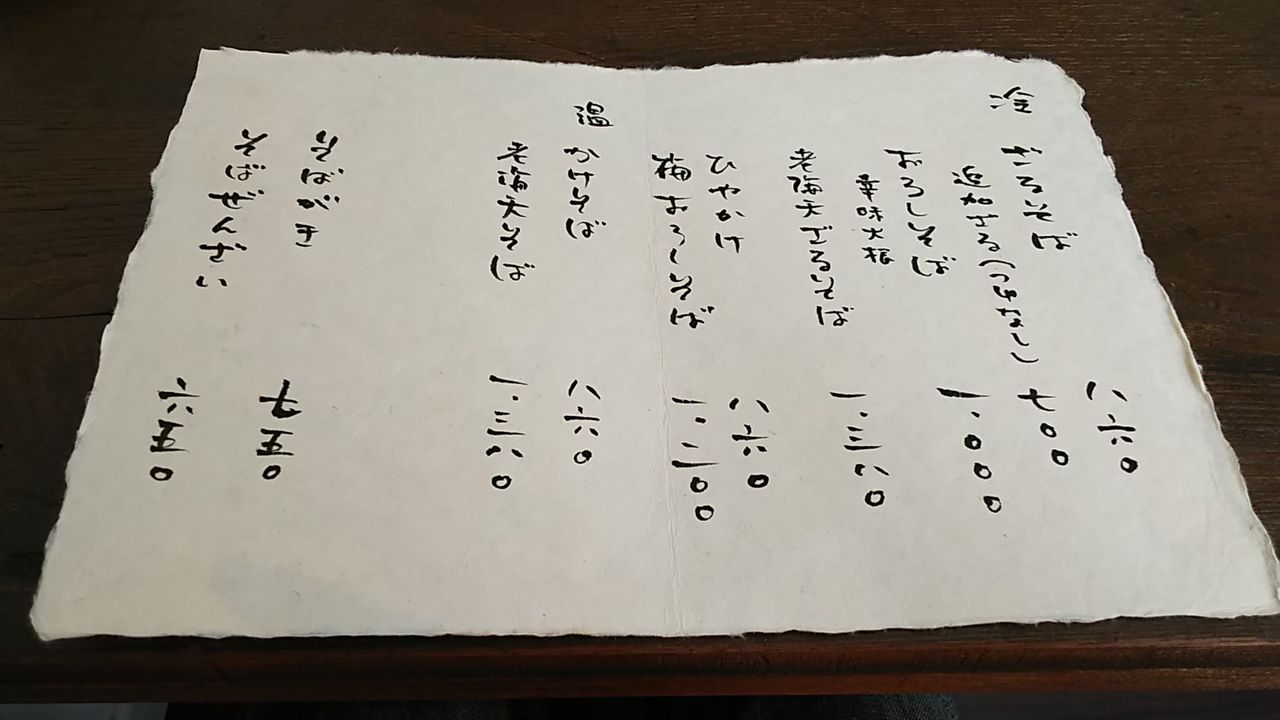 冷
ざるそば 八六〇
追加ざる(つゆなし) 七〇〇
おろしそば 一、〇〇〇
辛味大根
老海天ざるそば 一、三八〇
ひやかけ 八六〇
梅おろしそば 一、二〇〇
温
かけそば 八六〇
老海天そば 一、三八〇
そばがき 七五〇
そばぜんざい 六五〇